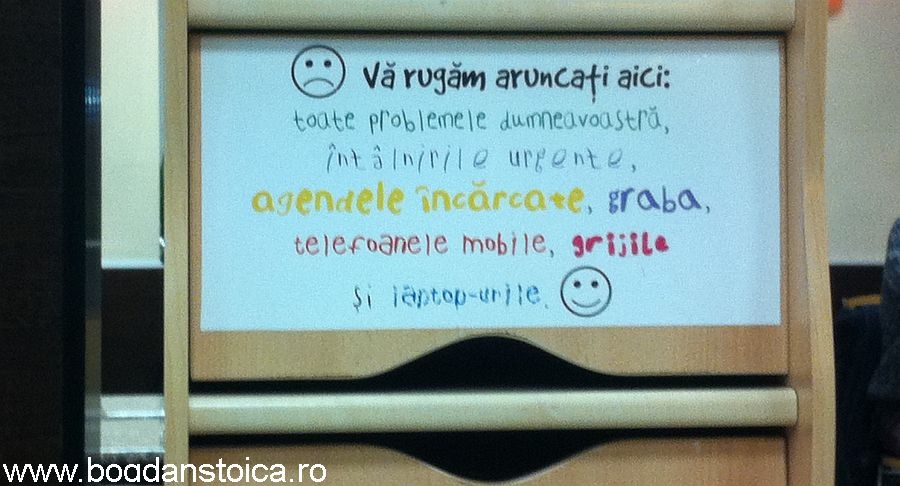 Vă rugăm aruncați aici:
toate problemele dumneavoastră,
întâlnirile urgente,
agendele încărcate, graba,
telefoanele mobile, grijile
și laptop-urile.
www.bogdanstoica.ro